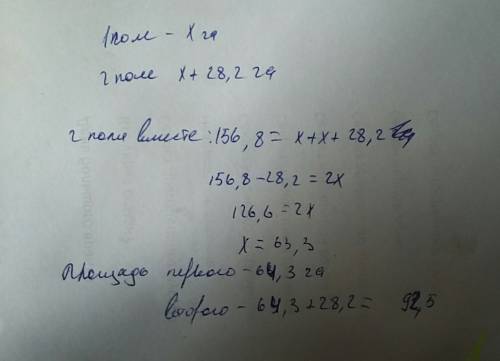 1 поле – x га
2 поле x + 28,2 га
2 поля вместе: 156,8 = x + x + 28,2 га
156,8 – 28,2 = 2x
126,6 = 2x
x = 63,3
Площадь первого – 64,3 га
второго – 64,3 + 28,2 = 92,5